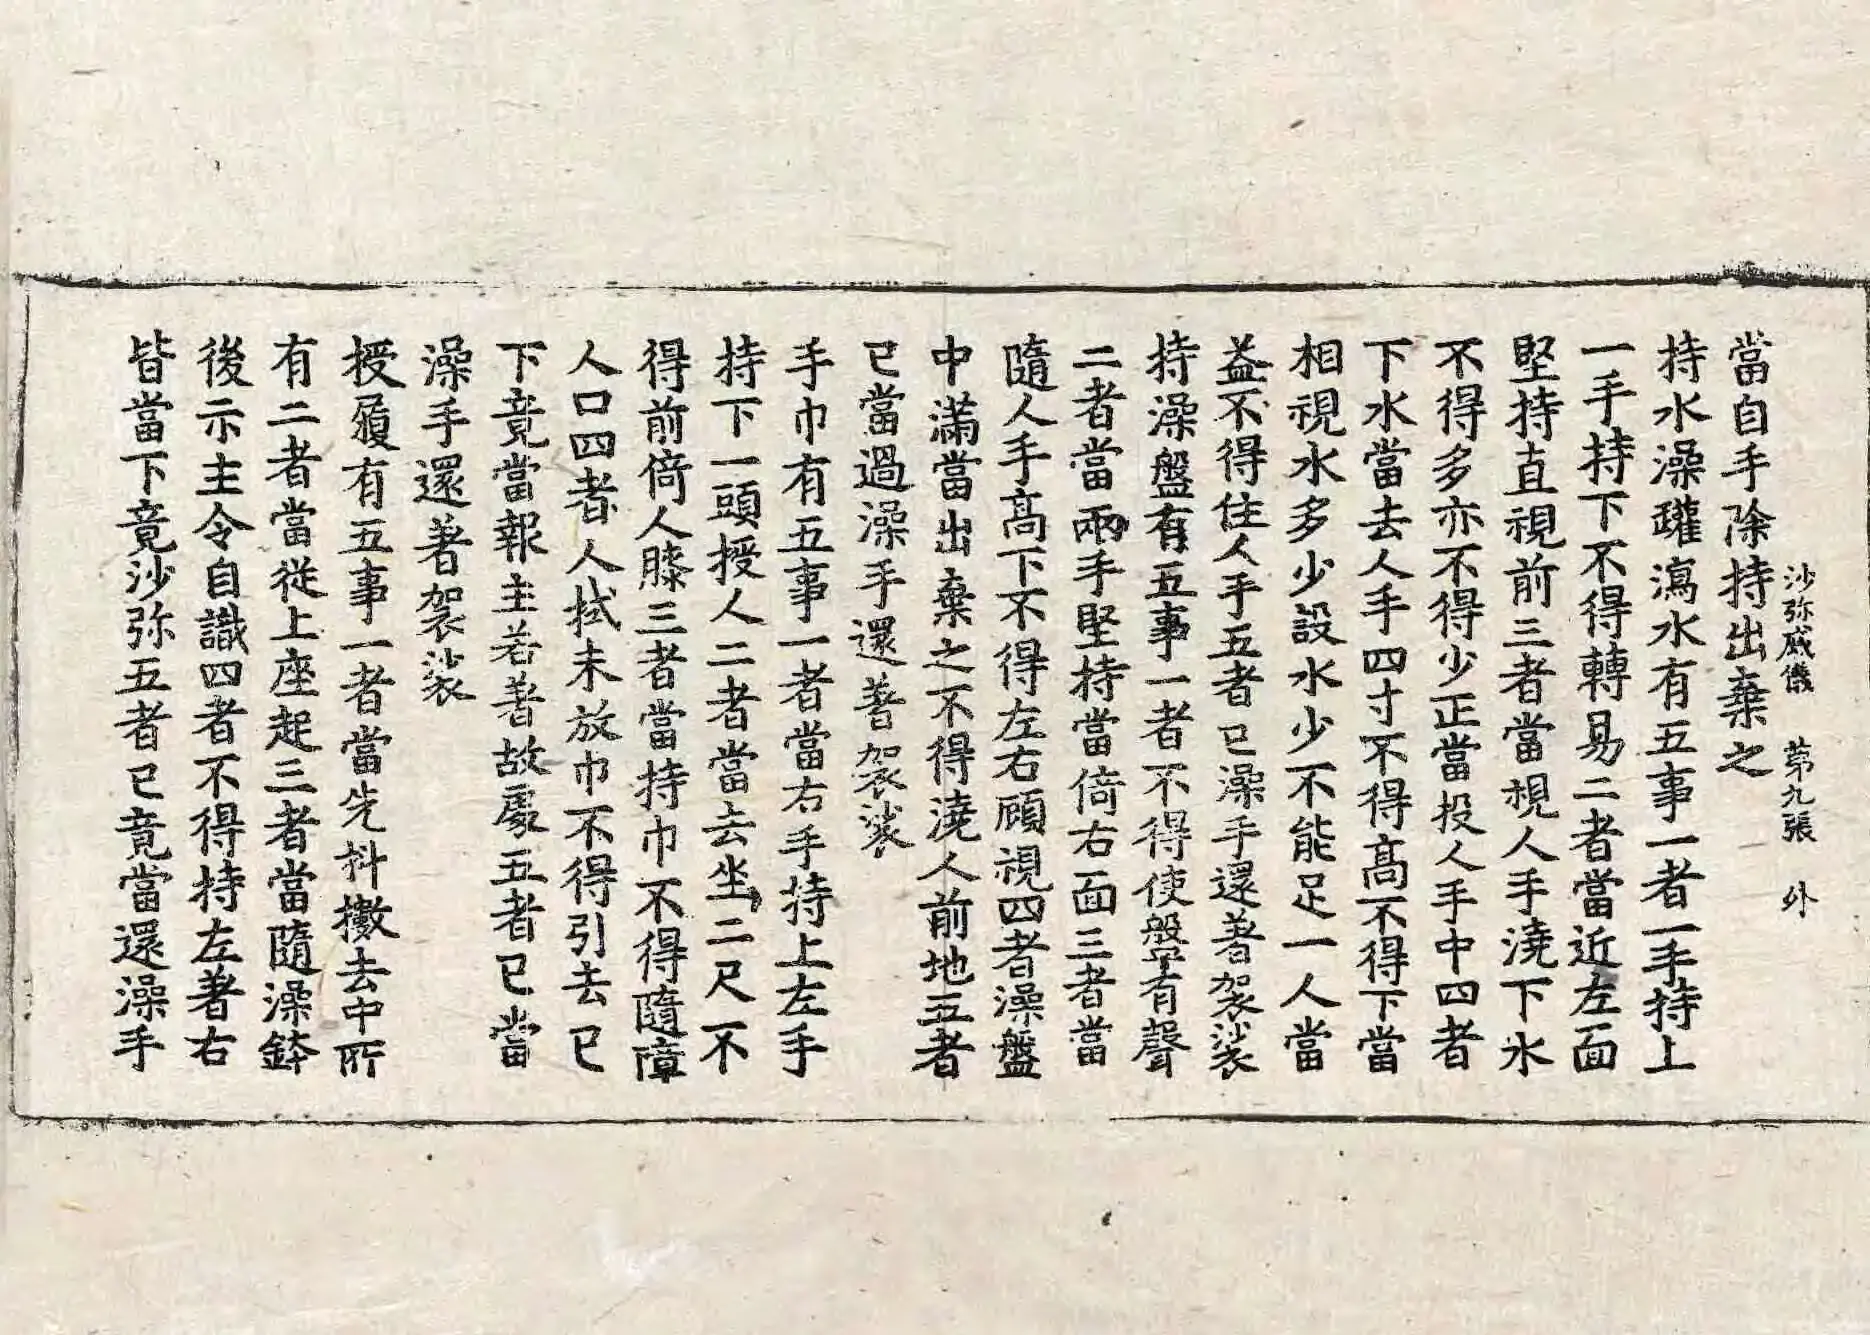 沙弥威儀　第九張　外
當自手除持出棄之
持水澡罐瀉水有五事一者一手持上
一手持下不得轉易二者當近左面
堅持直視前三者當視人手澆下水
不得多亦不得少正當投人手中四者
下水當去人手四寸不得高不得下當
相視水多少設水少不能足一人當
益不得住人手五者已澡手還著袈裟
持澡盤有五事一者不得使盤有聲
二者當兩手堅持當倚右面三者當
隨人手高下不得左右顧視四者澡盤
中滿當出棄之不得澆人前地五者
已當過澡手還著袈裟
手巾有五事一者當右手持上左手
持下一頭授人二者當去坐二尺不
得前倚人膝三者當持巾不得隨障
人口四者人拭未放巾不得引去已
下竟當報主若著故處五者已當
澡手還著袈裟
授履有五事一者當先抖擻去中所
有二者當從上座起三者當隨澡鉢
後示主令自識四者不得持左著右
皆當下竟沙弥五者已竟當還澡手